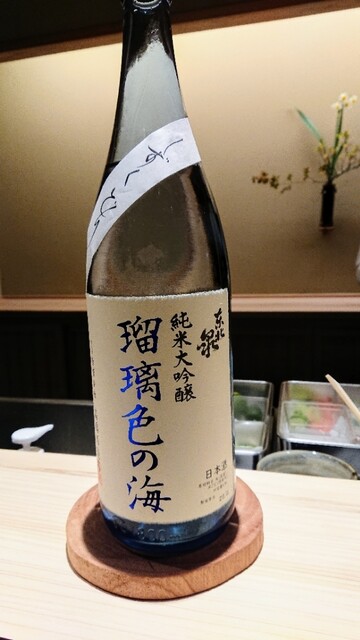 しずくどり
東北泉
純米大吟醸
瑠璃色の海
日本酒